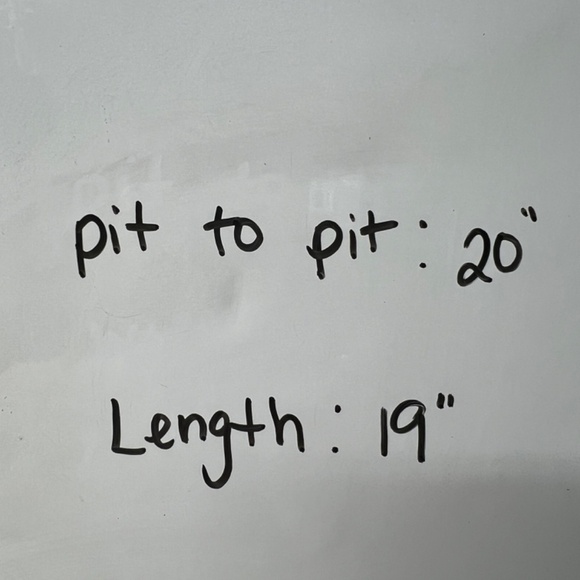 pit to pit: 20"
Length: 19"